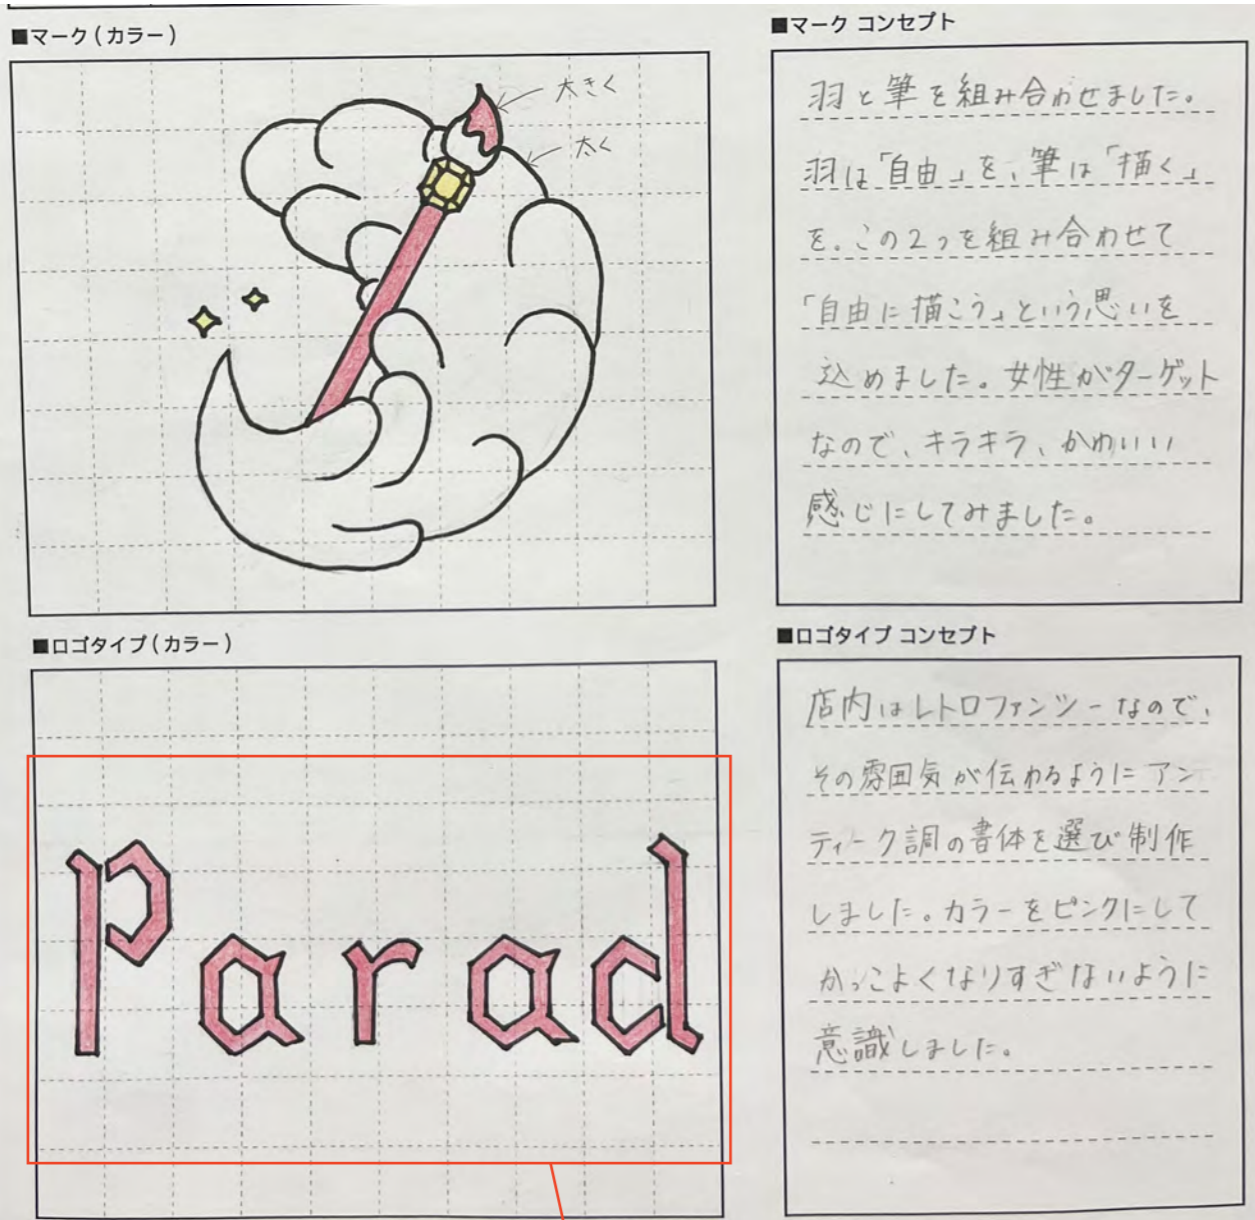 ■マーク(カラー)
大きく
太く
■マーク コンセプト
羽と筆を組み合わせました。
羽は「自由」を、筆は「描く」
を。この2つを組み合わせて
「自由に描こう」という思いを
込めました。女性がターゲット
なので、キラキラ、かわいい
感じにしてみました。
■ロゴタイプ(カラー)
Parad
■ロゴタイプ コンセプト
店内はレトロファンシーなので、
その雰囲気が伝わるようにアン
ティーク調の書体を選び制作
しました。カラーをピンクにして
かっこよくなりすぎないように
意識しました。